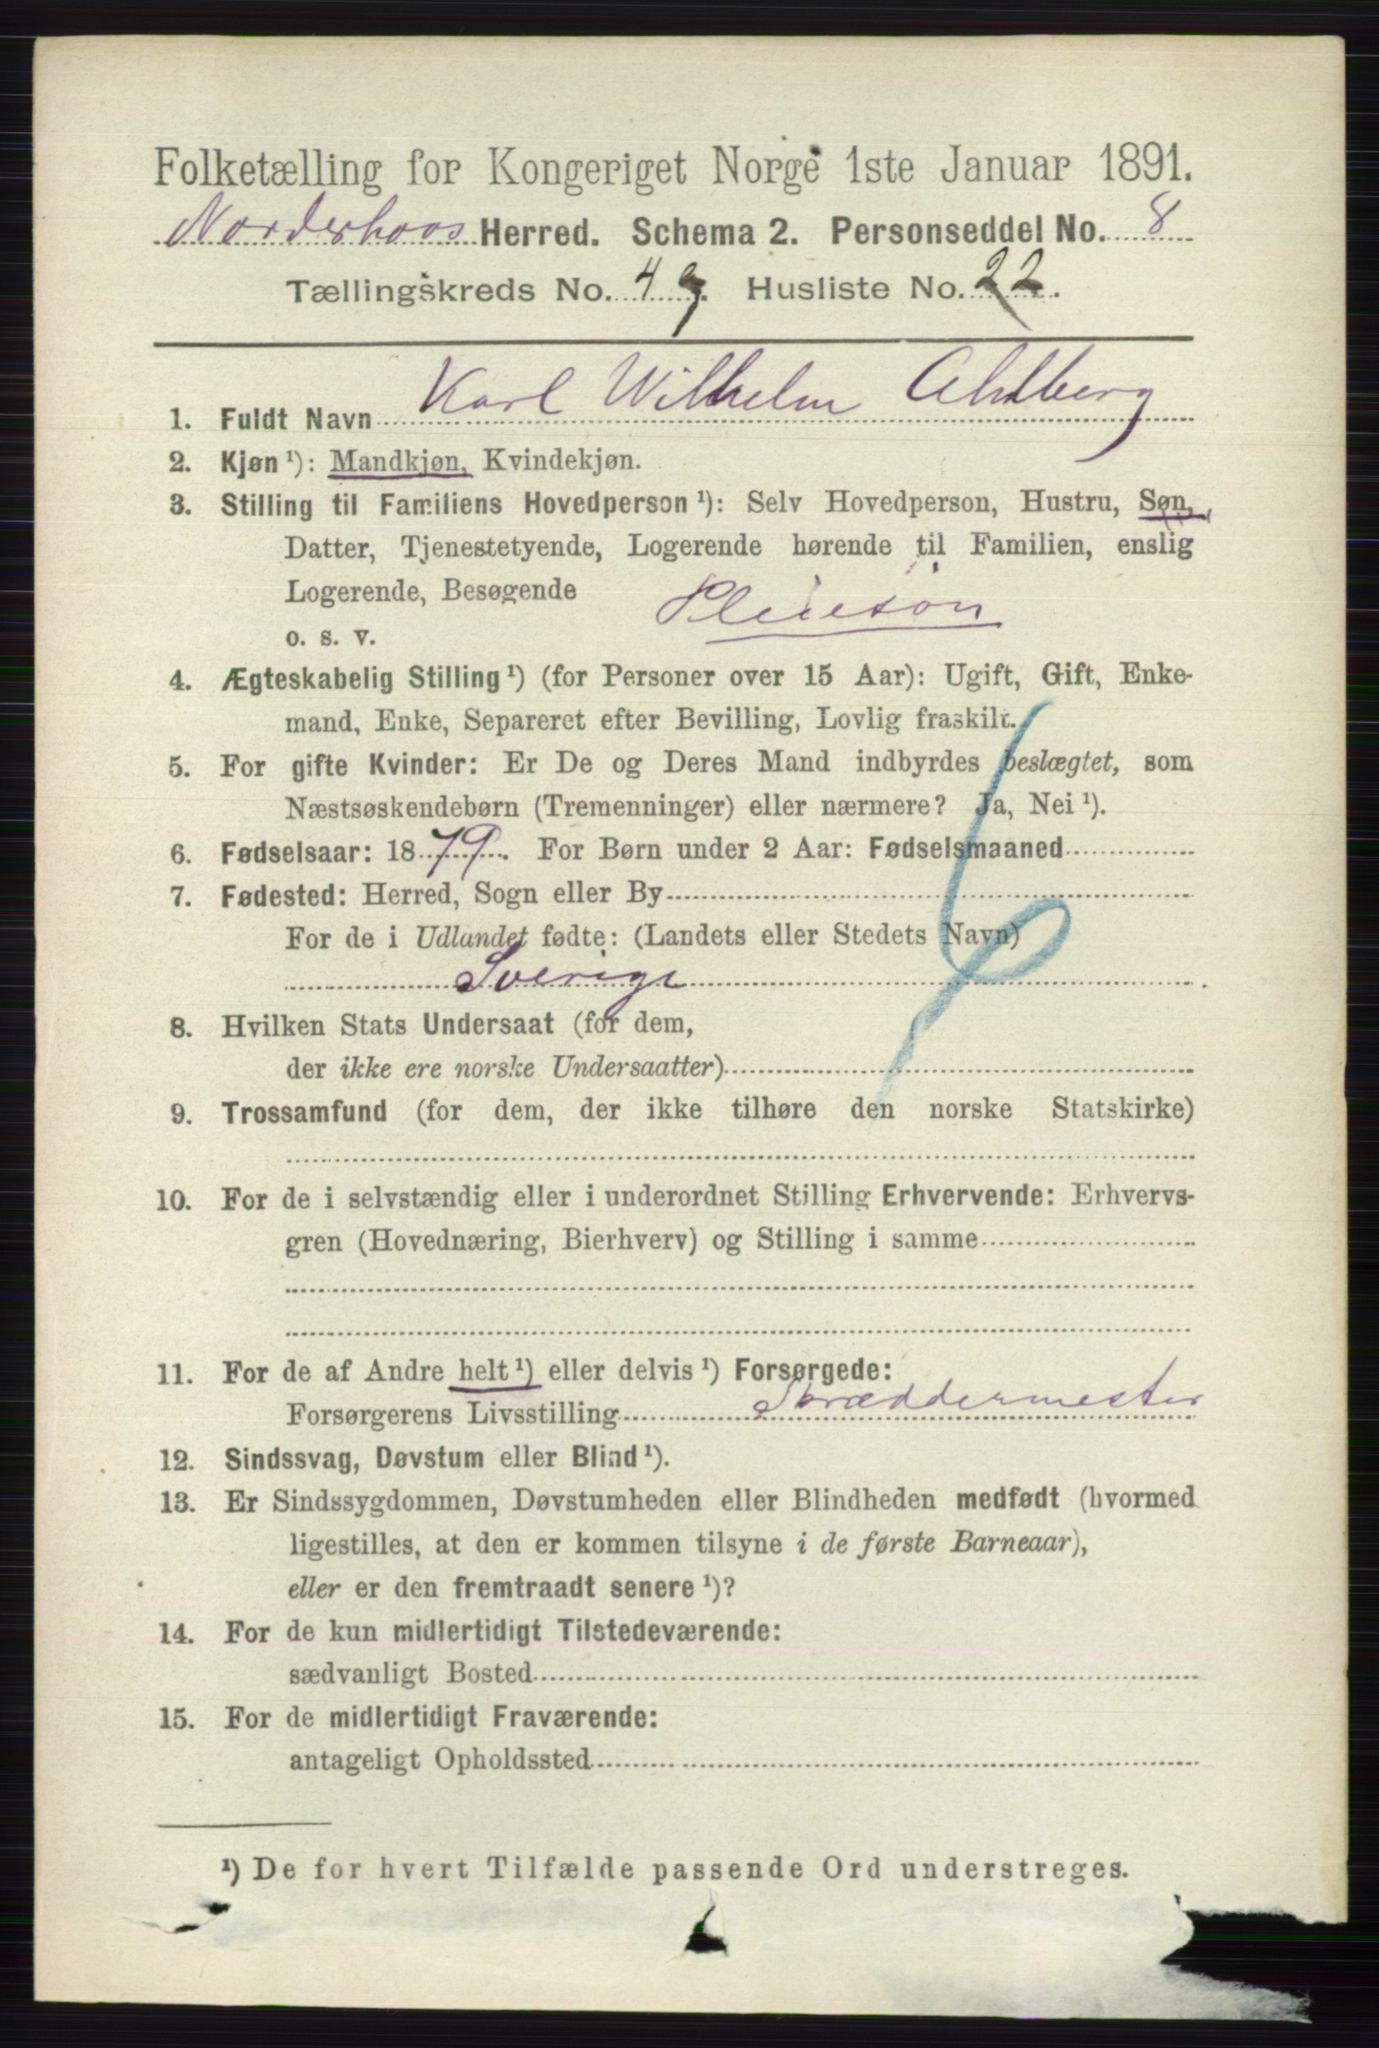 Folketælling for Kongeriget Norge 1ste Januar 1891.
Norderhoos Herred. Schema 2. Personseddel No. 8
Tællingskreds No. 4 9. Husliste No. 22.
1. Fuldt Navn Karl Wilhelm Ahlberg
2. Kjøn ¹): Mandkjøn, Kvindekjøn.
3. Stilling til Familiens Hovedperson ¹): Selv Hovedperson, Hustru, Søn,
Datter, Tjenestetyende, Logerende hørende til Familien, enslig
Logerende, Besøgende
o. s. v. Pleiesøn
4. Ægteskabelig Stilling ¹) (for Personer over 15 Aar): Ugift, Gift, Enke-
mand, Enke, Separeret efter Bevilling, Lovlig fraskilt.
5. For gifte Kvinder: Er De og Deres Mand indbyrdes beslægtet, som
Næstsøskendebørn (Tremenninger) eller nærmere? Ja, Nei ¹).
6. Fødselsaar: 1879. For Børn under 2 Aar: Fødselsmaaned
7. Fødested: Herred, Sogn eller By
For de i Udlandet fødte: (Landets eller Stedets Navn)
Sverige
8. Hvilken Stats Undersaat (for dem,
der ikke ere norske Undersaatter)
9. Trossamfund (for dem, der ikke tilhøre den norske Statskirke)
10. For de i selvstændig eller i underordnet Stilling Erhvervende: Erhvervs-
gren (Hovednæring, Bierhverv) og Stilling i samme
11. For de af Andre helt ¹) eller delvis ¹) Forsørgede:
Forsørgerens Livsstilling Skræddermester
12. Sindssvag, Døvstum eller Blind ¹).
13. Er Sindssygdommen, Døvstumheden eller Blindheden medfødt (hvormed
ligestilles, at den er kommen tilsyne i de første Barneaar),
eller er den fremtraadt senere ¹)?
14. For de kun midlertidigt Tilstedeværende:
sædvanligt Bosted
15. For de midlertidigt Fraværende:
antageligt Opholdssted
¹) De for hvert Tilfælde passende Ord understreges.